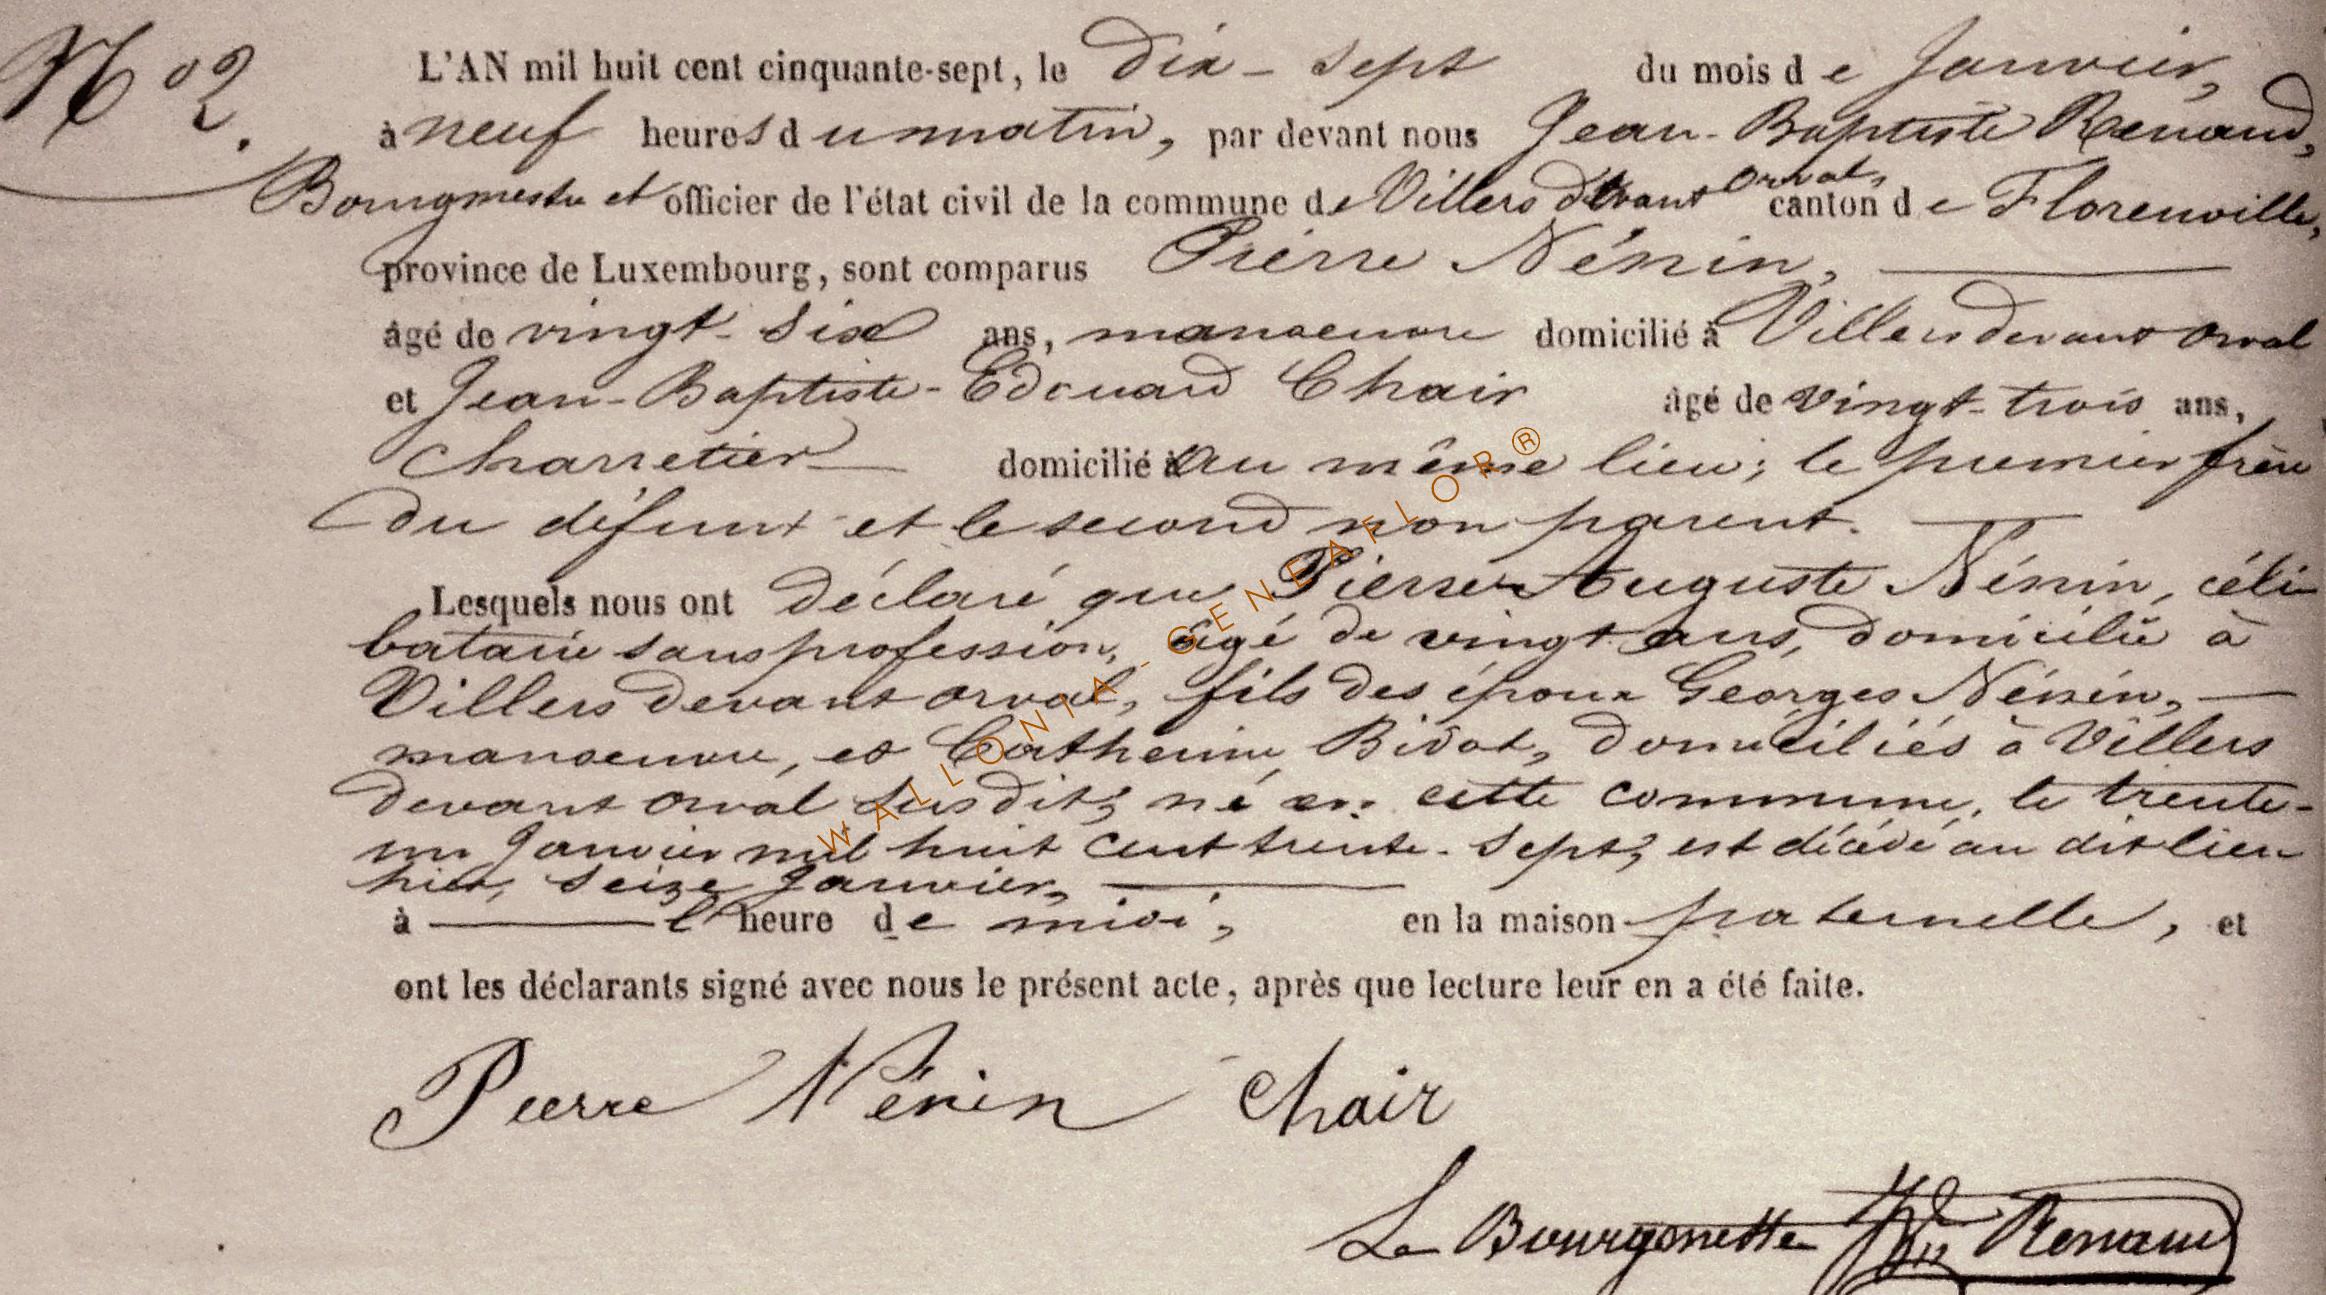 N° 2.
L'AN mil huit cent cinquante-sept, le dix-sept du mois de Janvier,
à neuf heures du matin, par devant nous Jean-Baptiste Renaud,
Bourgmestre et officier de l'état civil de la commune de Villers devant Orval, canton de Florenville,
province de Luxembourg, sont comparus Pierre Nénin,
âgé de vingt-six ans, manoeuvre domicilié à Villers devant Orval
et Jean-Baptiste-Edouard Chair âgé de vingt-trois ans,
charretier domicilié au même lieu; le premier frère
du défunt et le second non parent.
Lesquels nous ont déclaré que Pierre Auguste Nénin, céli-
bataire sans profession, âgé de vingt ans, domicilié à
Villers devant Orval, fils des époux Georges Nénin,
manoeuvre, et Catherine Bidot, domiciliés à Villers
devant Orval susdit; né en cette commune, le trente-
un Janvier mil huit cent trente-sept, est décédé au dit lieu
hier, seize Janvier,
à l'heure de midi, en la maison paternelle, et
ont les déclarants signé avec nous le présent acte, après que lecture leur en a été faite.
Pierre Nénin Chair
Le Bourgmestre JBte Renaud
WALLONIA-GENEAFLOR®